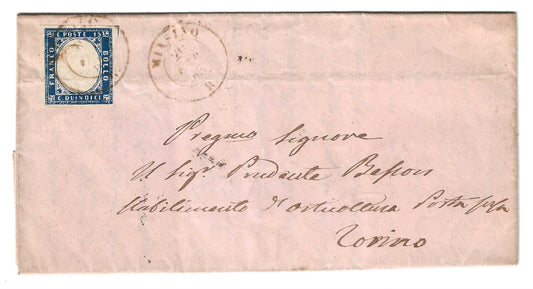 C. POSTE 15
FRANCO
BOLLO
C. QUINDICI
Pregmo Signore
Il Sigr. Prudente Besson
Stabilimento d'Orticoltura Porta
Torino